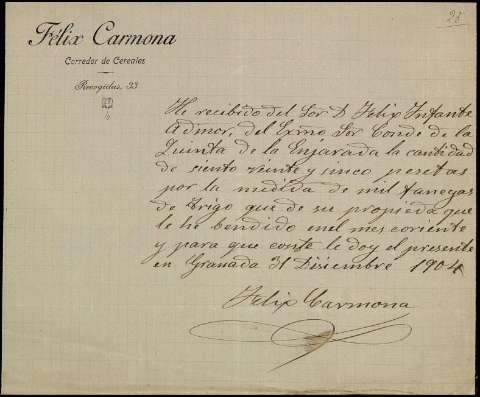 28
Félix Carmona
Corredor de Cereales
Recogidas, 33
He recibido del Sor D. Felix Infante
Admor, del Exmo Sor Conde de la
Quinta de la Enjarada la cantidad
de siento veinte y sinco pesetas
por la medida de mil fanegas
de trigo que de su propieda que
le he bendido enel mes coriente
y para que conste le doy el presente
en Granada 31 Disiembre 1904
Felix Carmona